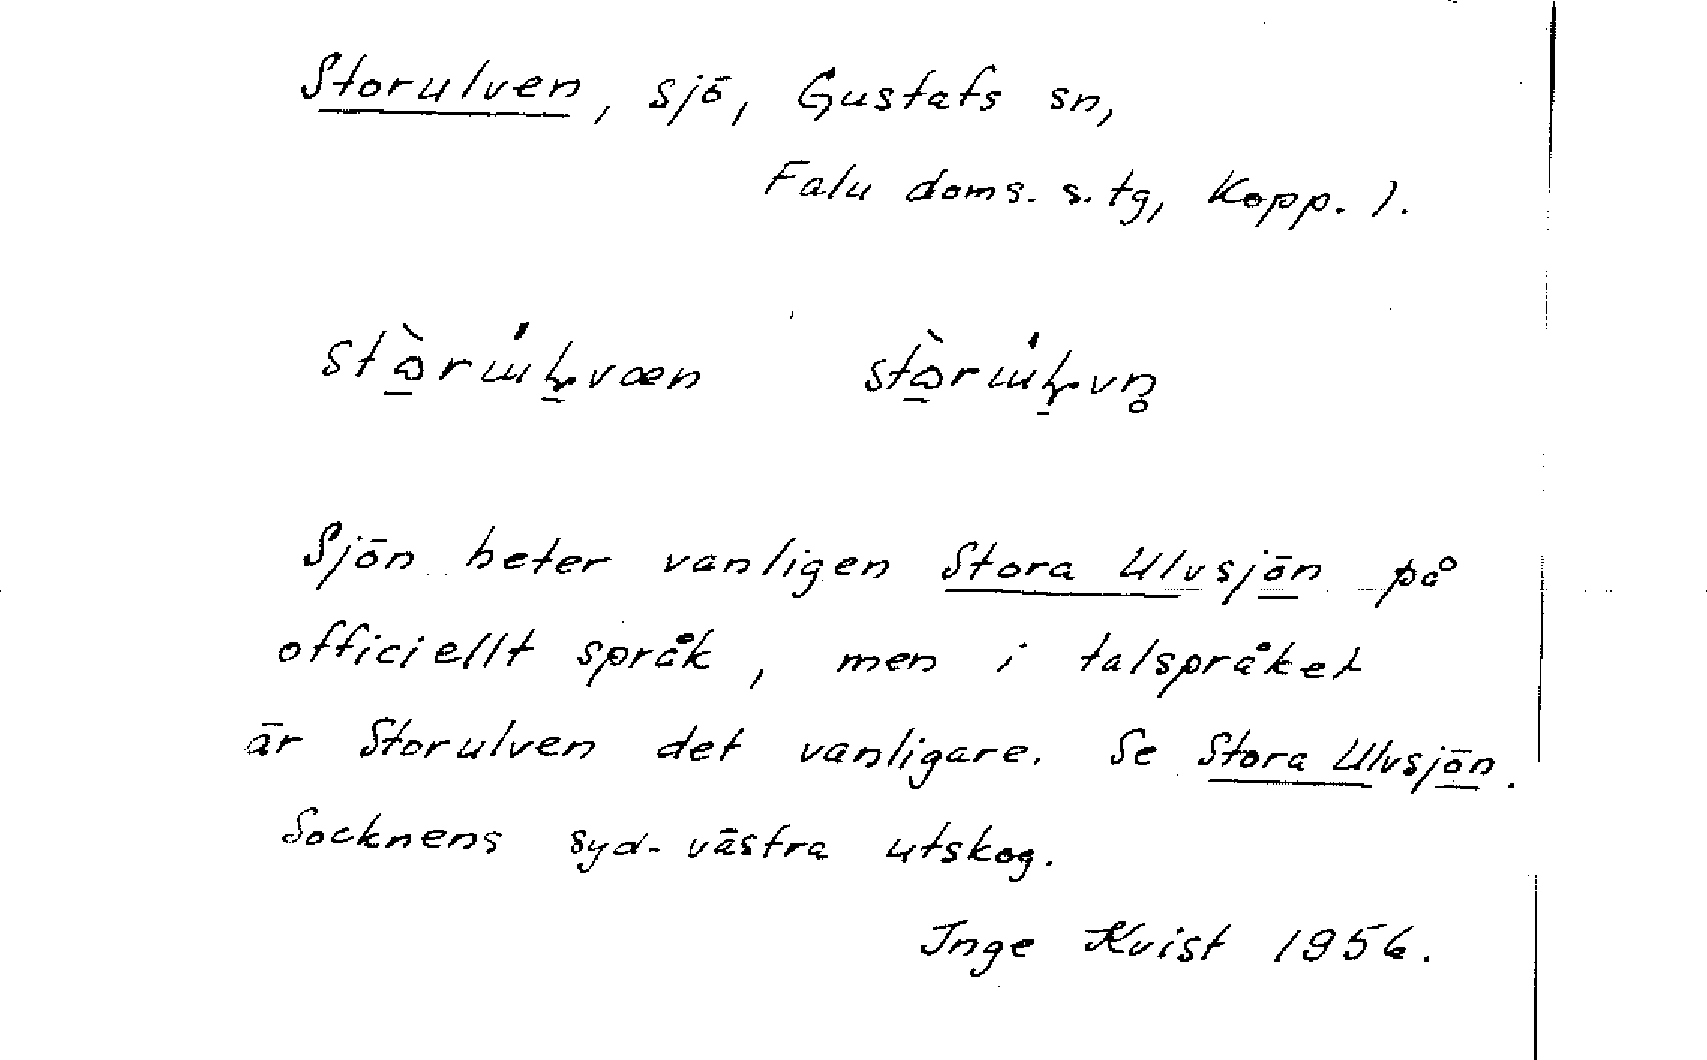 Storulven, sjö, Gustafs sn,
Falu doms. s. tg, Kopp. l.
Sjön heter vanligen Stora Ulvsjön på
officiellt språk, men i talspråket
är Storulven det vanligare. Se Stora Ulvsjön.
Socknens syd-västra utskog.
Inge Kvist 1956.